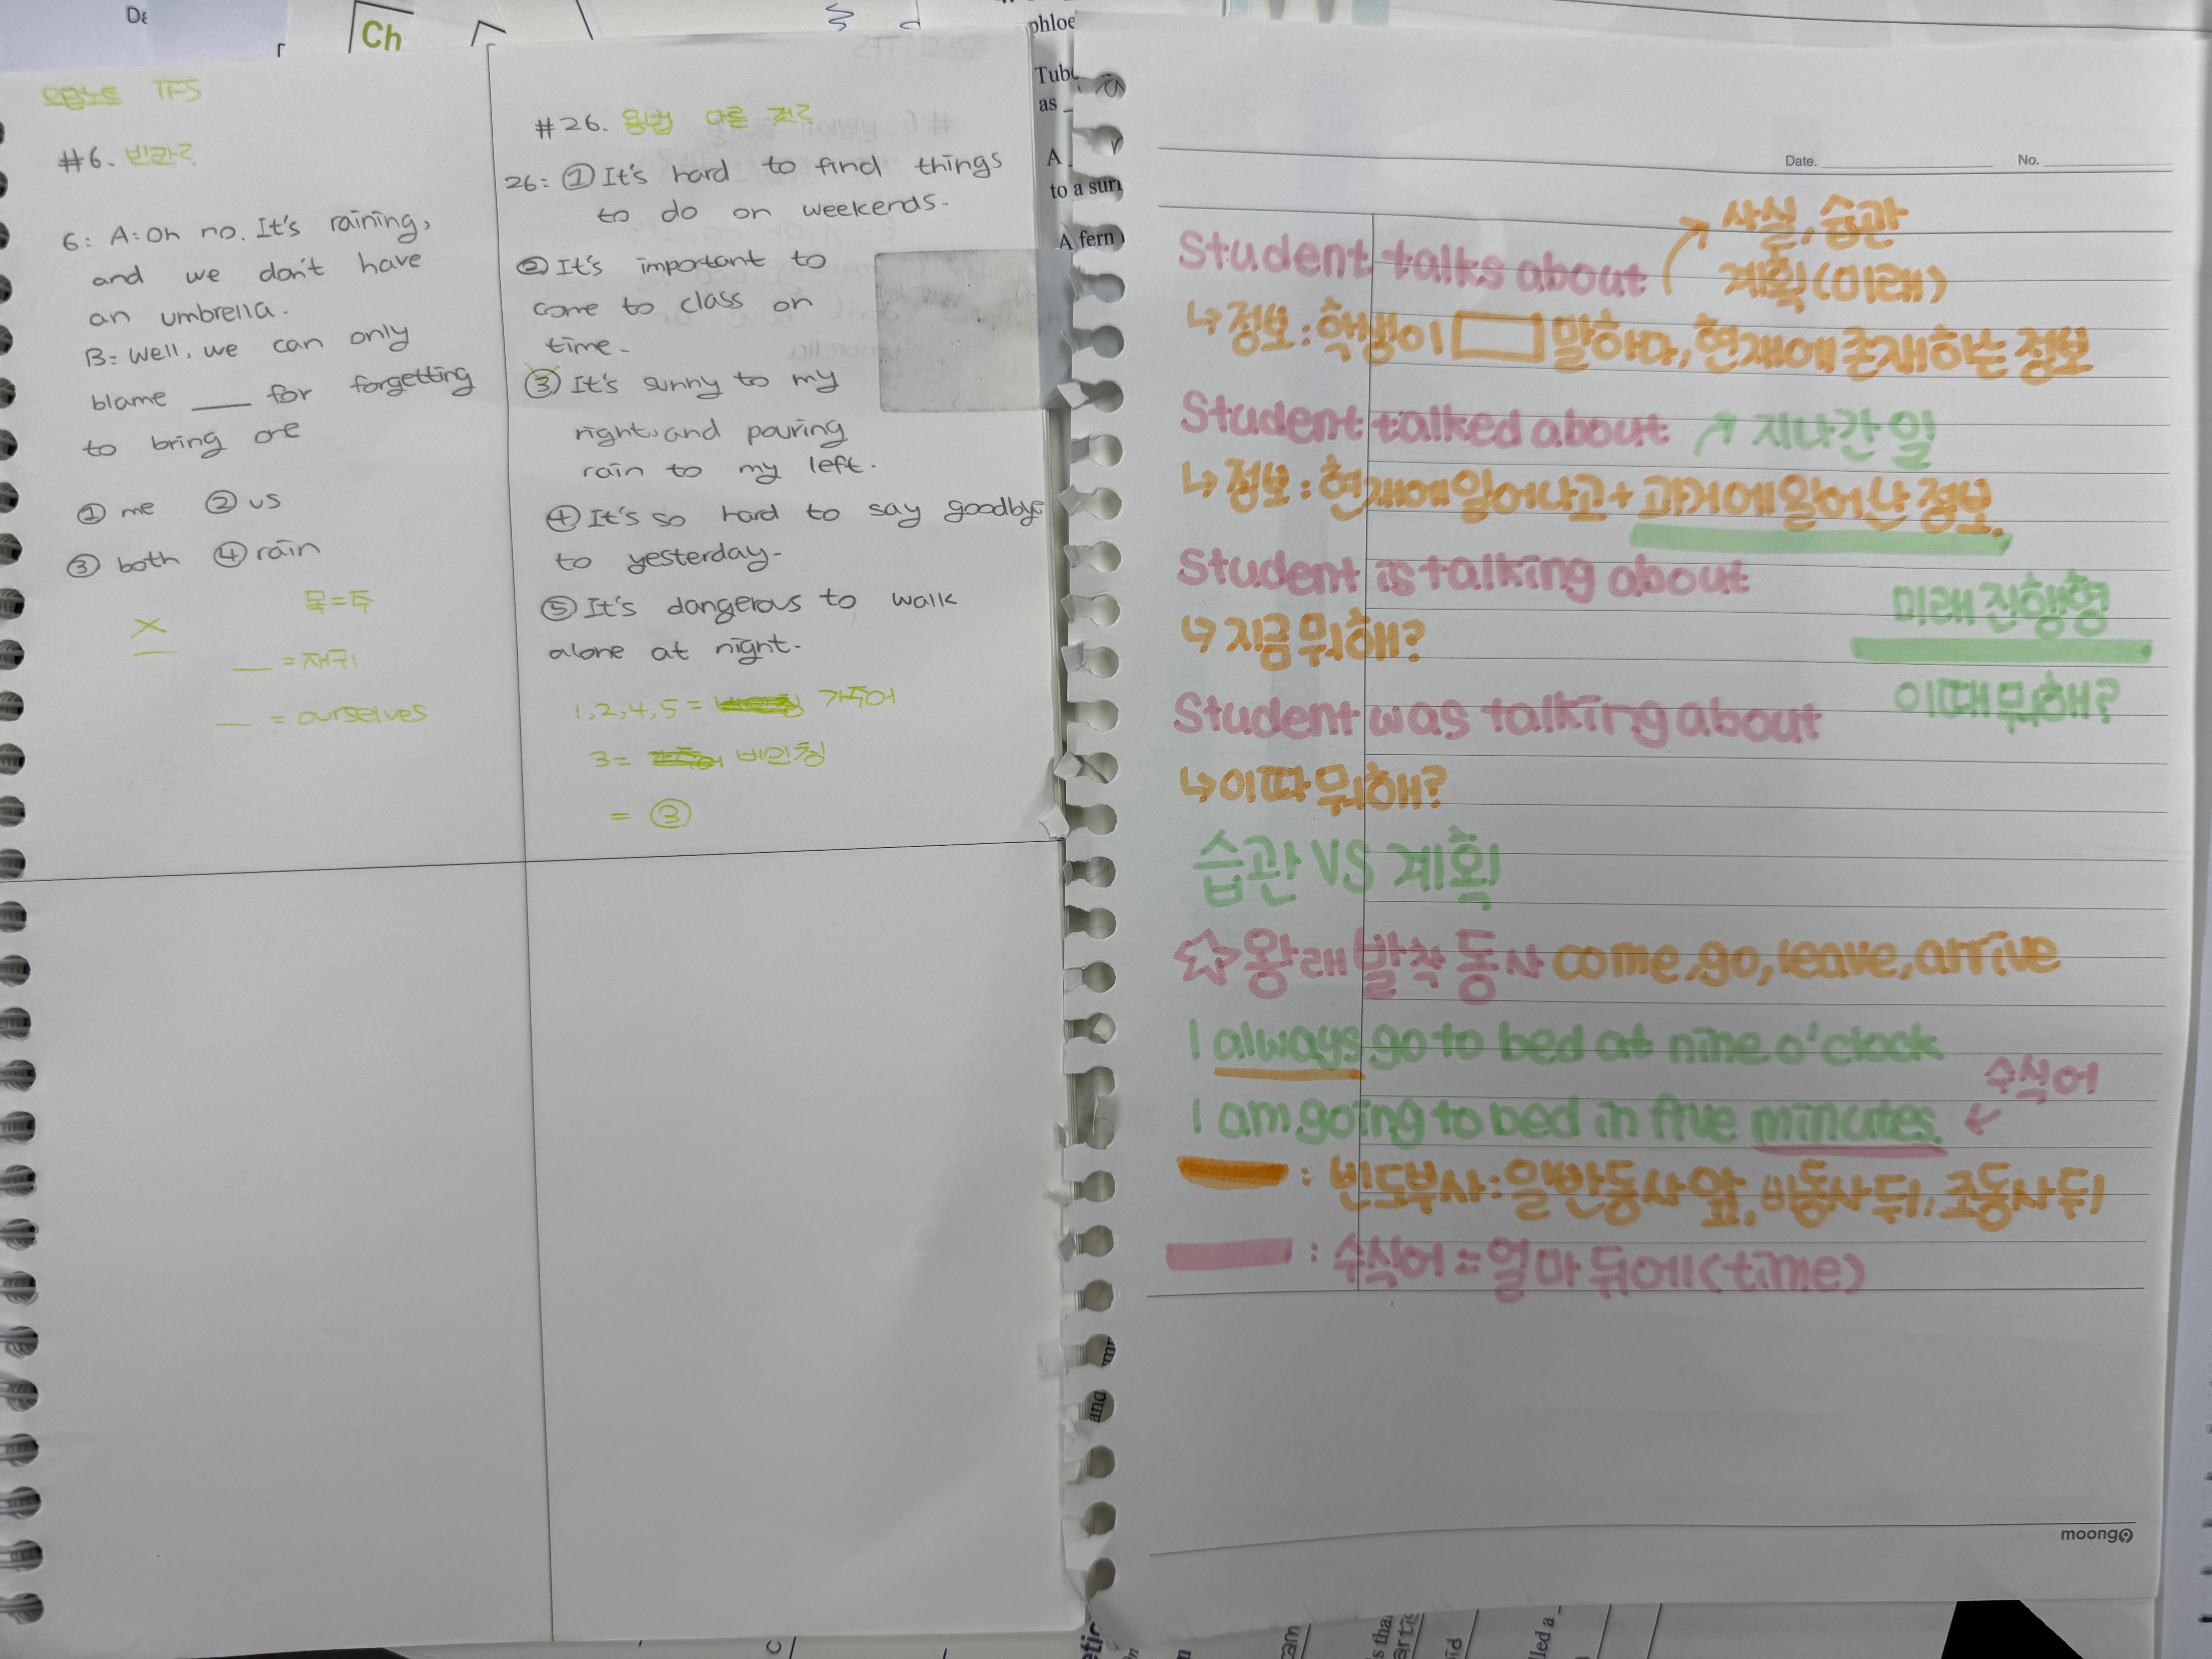 Ch
오답노트 TFS
#6. 빈칸?
6: A: Oh no. It's raining,
and we don't have
an umbrella.
B: Well, we can only
blame ___ for forgetting
to bring one
① me ② us
③ both ④ rain
목=주
X
__ = 재귀
__ = ourselves
#26. 용법 다른 것?
26: ① It's hard to find things
to do on weekends.
② It's important to
come to class on
time.
③ It's sunny to my
right, and pouring
rain to my left.
④ It's so hard to say goodbye
to yesterday.
⑤ It's dangerous to walk
alone at night.
1,2,4,5 = 가주어
3 = 비인칭
= ③
phloe
Tube
as _
A
to a sun
A fern
Date. No.
Student talks about ↗ 사실, 습관
계획(미래)
↳ 정보: 학생이 □ 말하다, 현재에 존재하는 정보
Student talked about ↗ 지나간 일
↳ 정보: 현재에 일어나고 + 과거에 일어난 정보.
Student is talking about
미래 진행형
↳ 지금 뭐해?
이때 뭐해?
Student was talking about
↳ 이따 뭐해?
습관 VS 계획
☆왕래 발착 동사 come, go, leave, arrive
I always go to bed at nine o'clock
수식어
I am going to bed in five minutes. ↙
: 빈도부사: 일반동사 앞, 비동사 뒤, 조동사 뒤
: 수식어 = 얼마 뒤에(time)
moong9
and